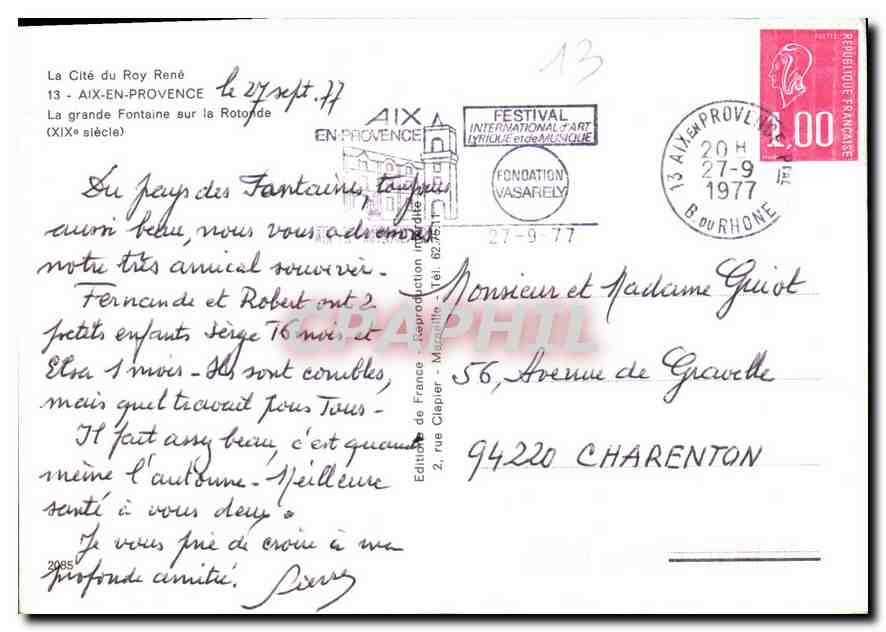 La Cité du Roy René
13 - AIX-EN-PROVENCE
La grande Fontaine sur la Rotonde
(XIXe siècle)
le 27 sept. 77
Du pays des Fontaines, toujours
aussi beau, nous vous adressons
notre très amical souvenir.
Fernande et Robert ont 2
petits enfants Serge 16 mois et
Elsa 1 mois - Ils sont comblés,
mais quel travail pour Tous -
Il fait assez beau, c'est quand
même l'automne - Meilleure
santé à vous deux.
Je vous prie de croire à ma
profonde amitié. Pierre
2085
Editions de France - Reproduction interdite
2, rue Clapier - Marseille - Tél. 62.75.11
13
AIX
EN-PROVENCE
FESTIVAL
INTERNATIONAL d'ART
LYRIQUE et de MUSIQUE
FONDATION
VASARELY
27-9-77
13 AIX EN PROVENCE PPAL
20 H
27-9
1977
B. DU RHONE
POSTES
1,00
REPUBLIQUE FRANÇAISE
Monsieur et Madame Guiot
56, Avenue de Gravelle
94220 CHARENTON
CPAPHIL